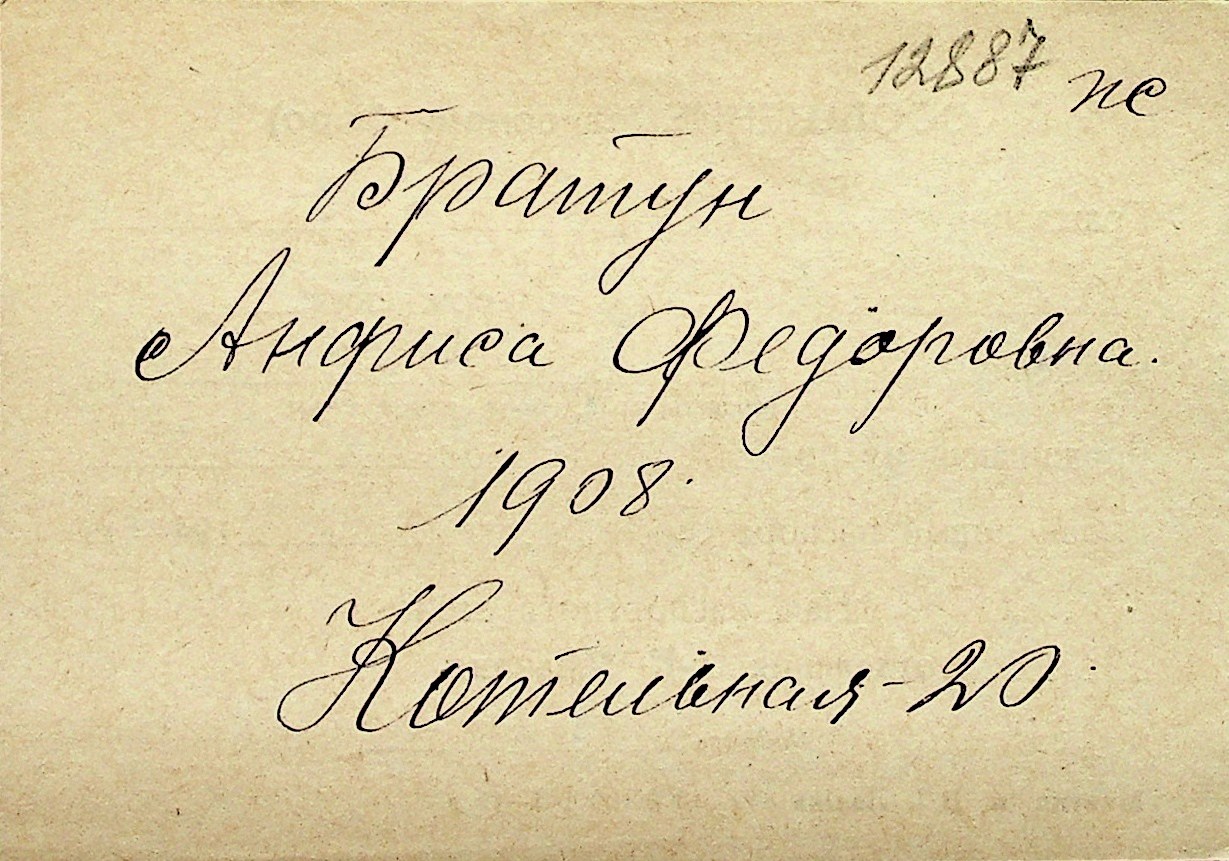 12887 пс
Братун
Анфиса Федоровна.
1908.
Котельная - 20.